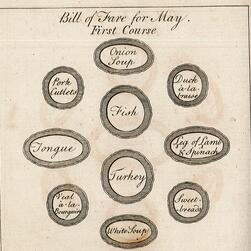 Bill of Fare for May.
First Course
Onion
Soup
Pork
Cutlets
Duck
à-la-
braise
Fish
Tongue
Leg of Lamb
& Spinach
Turkey
Veal
à-la
Bourgeois
Sweet-
breads
White Soup